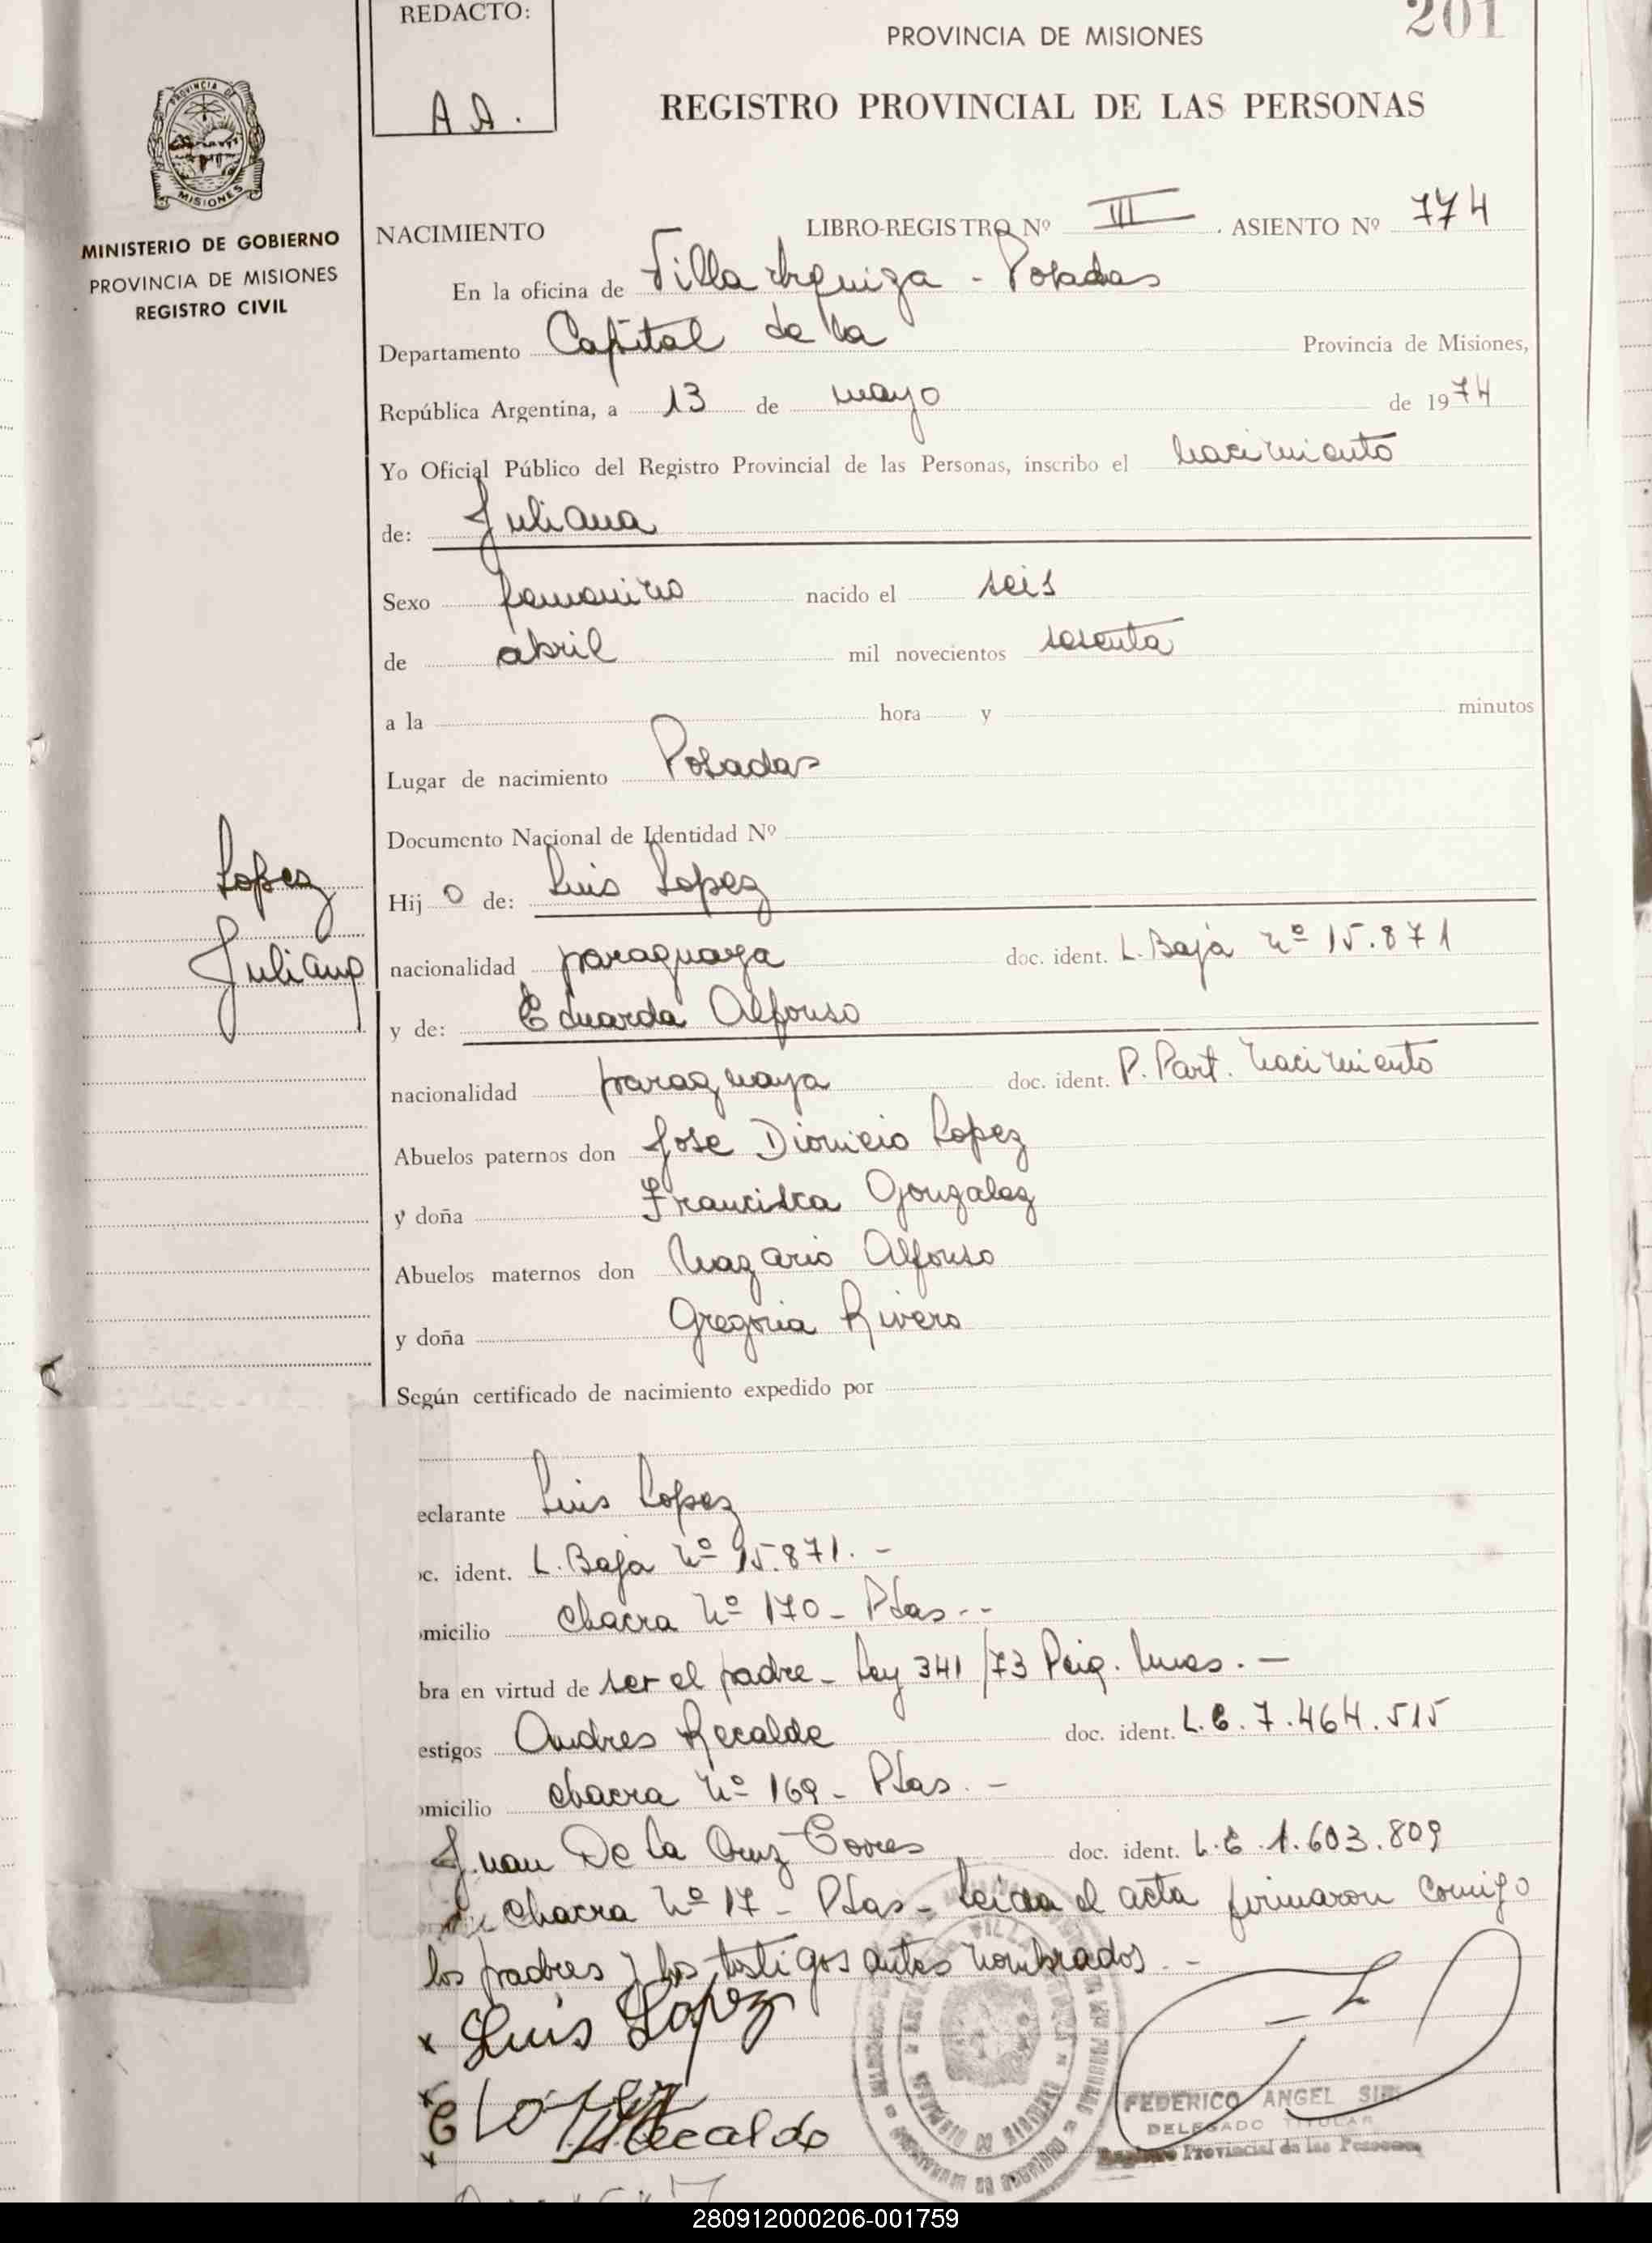 REDACTO:
A A.
201
PROVINCIA DE MISIONES
REGISTRO PROVINCIAL DE LAS PERSONAS
PROVINCIA DE
MISIONES
MINISTERIO DE GOBIERNO
PROVINCIA DE MISIONES
REGISTRO CIVIL
NACIMIENTO LIBRO-REGISTRO Nº III . ASIENTO Nº 774
En la oficina de Villa Urquiza - Posadas
Departamento Capital de la Provincia de Misiones,
República Argentina, a 13 de mayo de 1974
Yo Oficial Público del Registro Provincial de las Personas, inscribo el nacimiento
de: Juliana
Sexo femenino nacido el seis
de abril mil novecientos sesenta
a la hora y minutos
Lugar de nacimiento Posadas
Documento Nacional de Identidad Nº
Lopez
Juliana
Hij o de: Luis Lopez
nacionalidad paraguaya doc. ident. L. Baja nº 15.871
y de: Eduarda Alfonso
nacionalidad paraguaya doc. ident. P. Part. nacimiento
Abuelos paternos don Jose Dionicio Lopez
y doña Francisca Gonzalez
Abuelos maternos don Nazario Alfonso
y doña Gregoria Rivero
Según certificado de nacimiento expedido por
eclarante Luis Lopez
c. ident. L. Baja nº 15.871. -
omicilio chacra nº 170 - Pdas. -
bra en virtud de ser el padre - Ley 341/73 -
estigos Andres Recalde doc. ident. L.E. 7.464.515
omicilio chacra nº 169 - Pdas. -
Juan De la Cruz doc. ident. L.E. 1.603.809
chacra nº 17 - Pdas - leida el acta firmaron comigo
los padres y los testigos antes nombrados. -
x Luis López
Recalde
FEDERICO ANGEL
DELEGADO TITULAR
Registro Provincial de las Personas
280912000206-001759